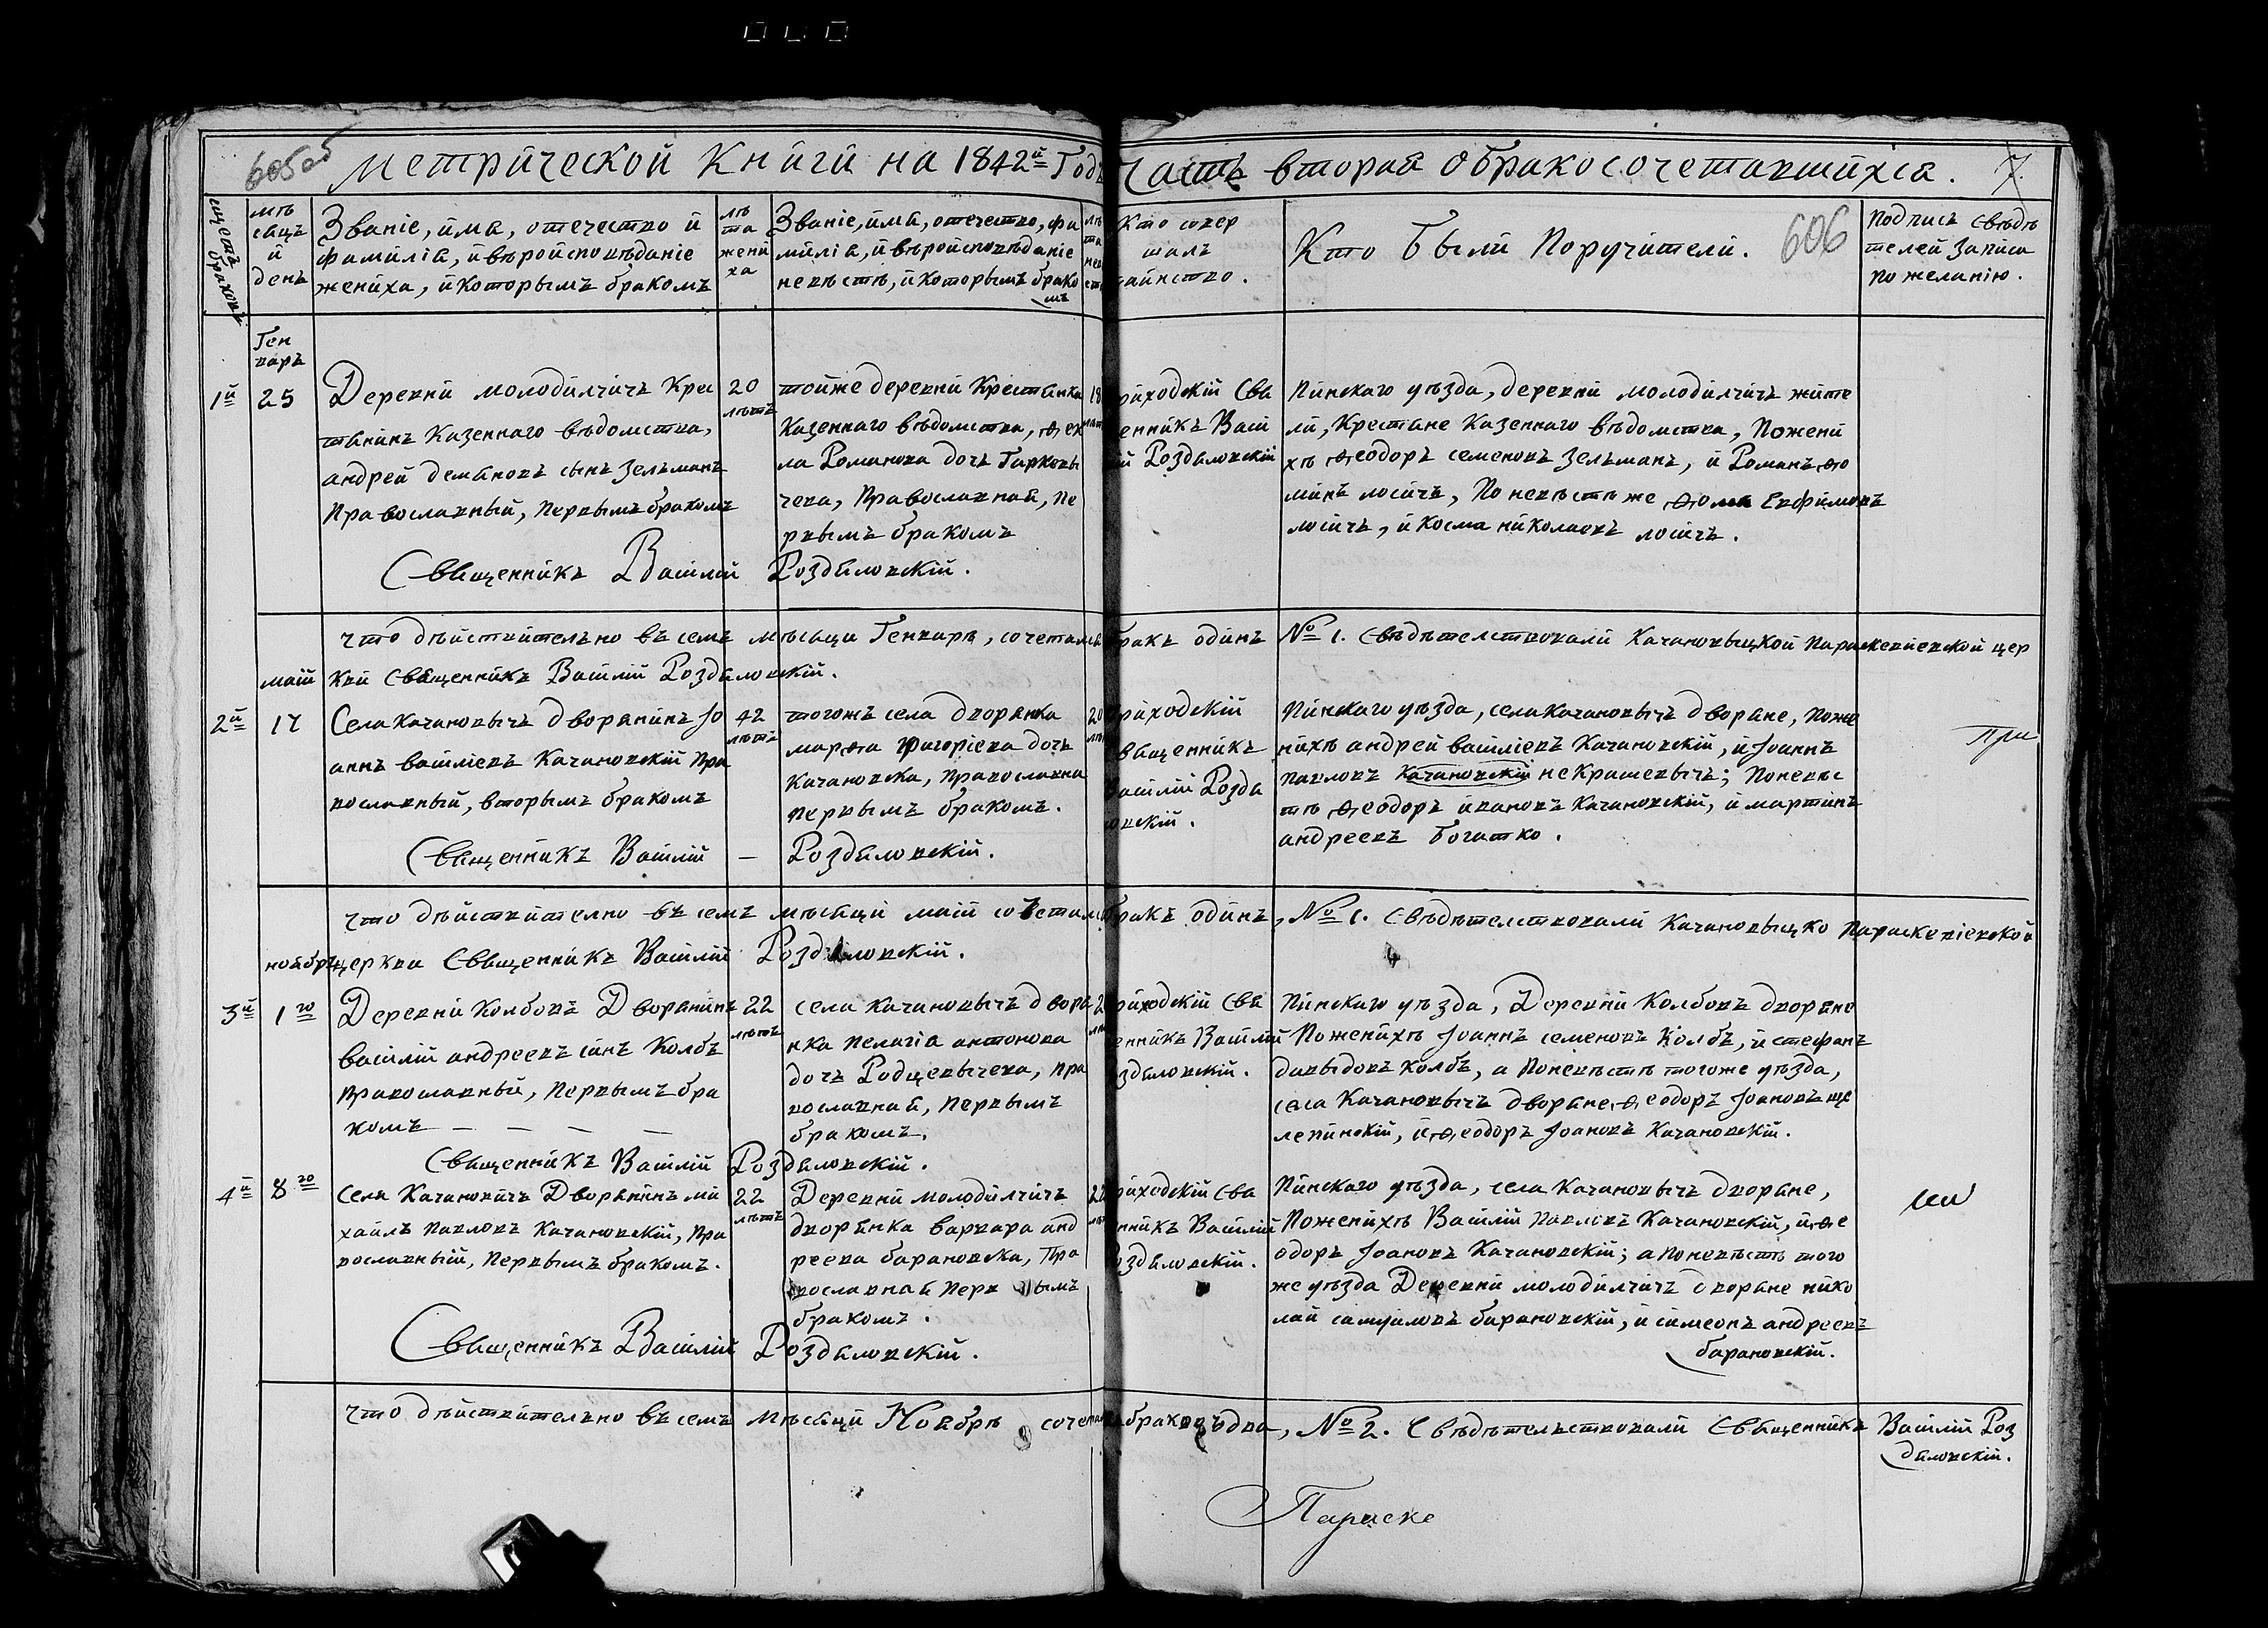 605об
Метрической Книги на 1842й Годъ
Часть вторая о бракосочетавшихся. 7.
606
щетъ браковъ
мѣ
сяцъ
и
день
Званіе, имя, отечество и
фамилія, и вѣроисповѣданіе
жениха, и которымъ бракомъ
лѣ
та
жени
ха
Званіе, имя, отечество, фа
милія, и вѣроисповѣданіе
невѣсты, и которымъ брако
мъ
Кто совер
шалъ
таинство.
Кто были Поручители.
Подпись свѣдѣ
телей записи
по желанію.
Ген
варь
1й
25
Деревни Молодилчичъ Крес
тянинъ Казеннаго вѣдомства,
андрей Демяновъ сынъ Зельманъ
Православный, Первымъ бракомъ
20
лѣтъ
тойже деревни Крестянка
Казеннаго вѣдомства, Ѳек
ла Романова дочь Гаркови
чева, Православная, Пе
рвымъ бракомъ
18
Приходскій Свя
щенникъ Васи
лій Роздяловскій
Пинскаго уѣзда, деревни Молодилчичъ жите
ли, Крестяне Казеннаго вѣдомства, По жени
хѣ Ѳеодоръ Семеновъ Зельманъ, и Романъ Ѳо
минъ Лосичъ, По невѣстѣ же Ѳома Евфимовъ
Лосичъ, и Косма Николаевъ Лосичъ.
Священникъ Василій Роздяловскій.
что дѣйствительно въ семъ мѣсяцы Генварѣ, сочетался бракъ одинъ № 1. Свѣдѣтелствовали Качановыцкой Параскевіевской цер
кви Священникъ Василій Роздяловскій.
маій
2й
17
Села Качановычъ Дворянинъ Іо
аннъ Василіевъ Качановскій Пра
вославный, вторымъ бракомъ
42
лѣтъ
тогожъ села дворянка
Марѳа Григоріева дочь
Качановска, Православна
первымъ бракомъ.
20
Приходскій
Священникъ
Василій Роздя
ловскій.
Пинскаго уѣзда, села Качановычъ дворяне, По же
нихѣ андрей Василіевъ Качановскій, и Іоаннъ
Павловъ Качановскій Некрашевычъ; По невѣс
тѣ Ѳеодоръ Ивановъ Качановскій, и Мартинъ
андреевъ Богатко.
При
Священникъ Василій — Роздяловскій.
что дѣйствително въ семъ мѣсяцы маій сочетался бракъ одинъ, № 1. Свѣдѣтелствовали Качановыцко Параскевіевской
церкви Священникъ Василій Роздяловскій.
ноябрь
3й
1го
Деревни Колбовъ Дворянинъ
Василій андреевъ синъ Колбъ
Православный, Первымъ бра
комъ — — — —
22
лѣтъ
села Качановычъ дворя
нка Пелагія антонова
дочь Родцевычева, Пра
вославная, Первымъ
бракомъ.
Приходскій Свя
щенникъ Василій
Роздяловскій.
Пинскаго уѣзда, Деревни Колбовъ дворяне
По женихѣ Іоаннъ Семеновъ Колбъ, и Стефанъ
Давыдовъ Колбъ, а По невѣстѣ тогоже уѣзда,
села Качановычъ дворяне, Ѳеодоръ Іоановъ Ще
лепинскій, и Ѳеодоръ Іоановъ Качановскій.
Священникъ Василій Роздяловскій.
4й
8го
Села Качановичъ Дворянинъ Ми
хаилъ Павловъ Качановскій, Пра
вославный, Первымъ бракомъ.
22
лѣтъ
Деревни Молодилчичъ
дворянка Варвара анд
реева Барановска, Пра
вославная Первымъ
бракомъ.
Приходскій Свя
щенникъ Василій
Роздяловскій.
Пинскаго уѣзда, села Качановычъ дворяне,
По женихѣ Василій Павловъ Качановскій, и Ѳе
одоръ Іоановъ Качановскій; а По невѣстѣ того
же уѣзда Деревни Молодилчичъ дворяне Нико
лай Самуиловъ Барановскій, и Симеонъ андреевъ
Барановскій.
Священникъ Василій Роздяловскій.
что дѣйствительно въ семъ мѣсяцы Ноябрѣ сочеталось браковъ два, № 2. Свѣдѣтельствовали Священникъ Василій Роз
дяловскій.
Параске